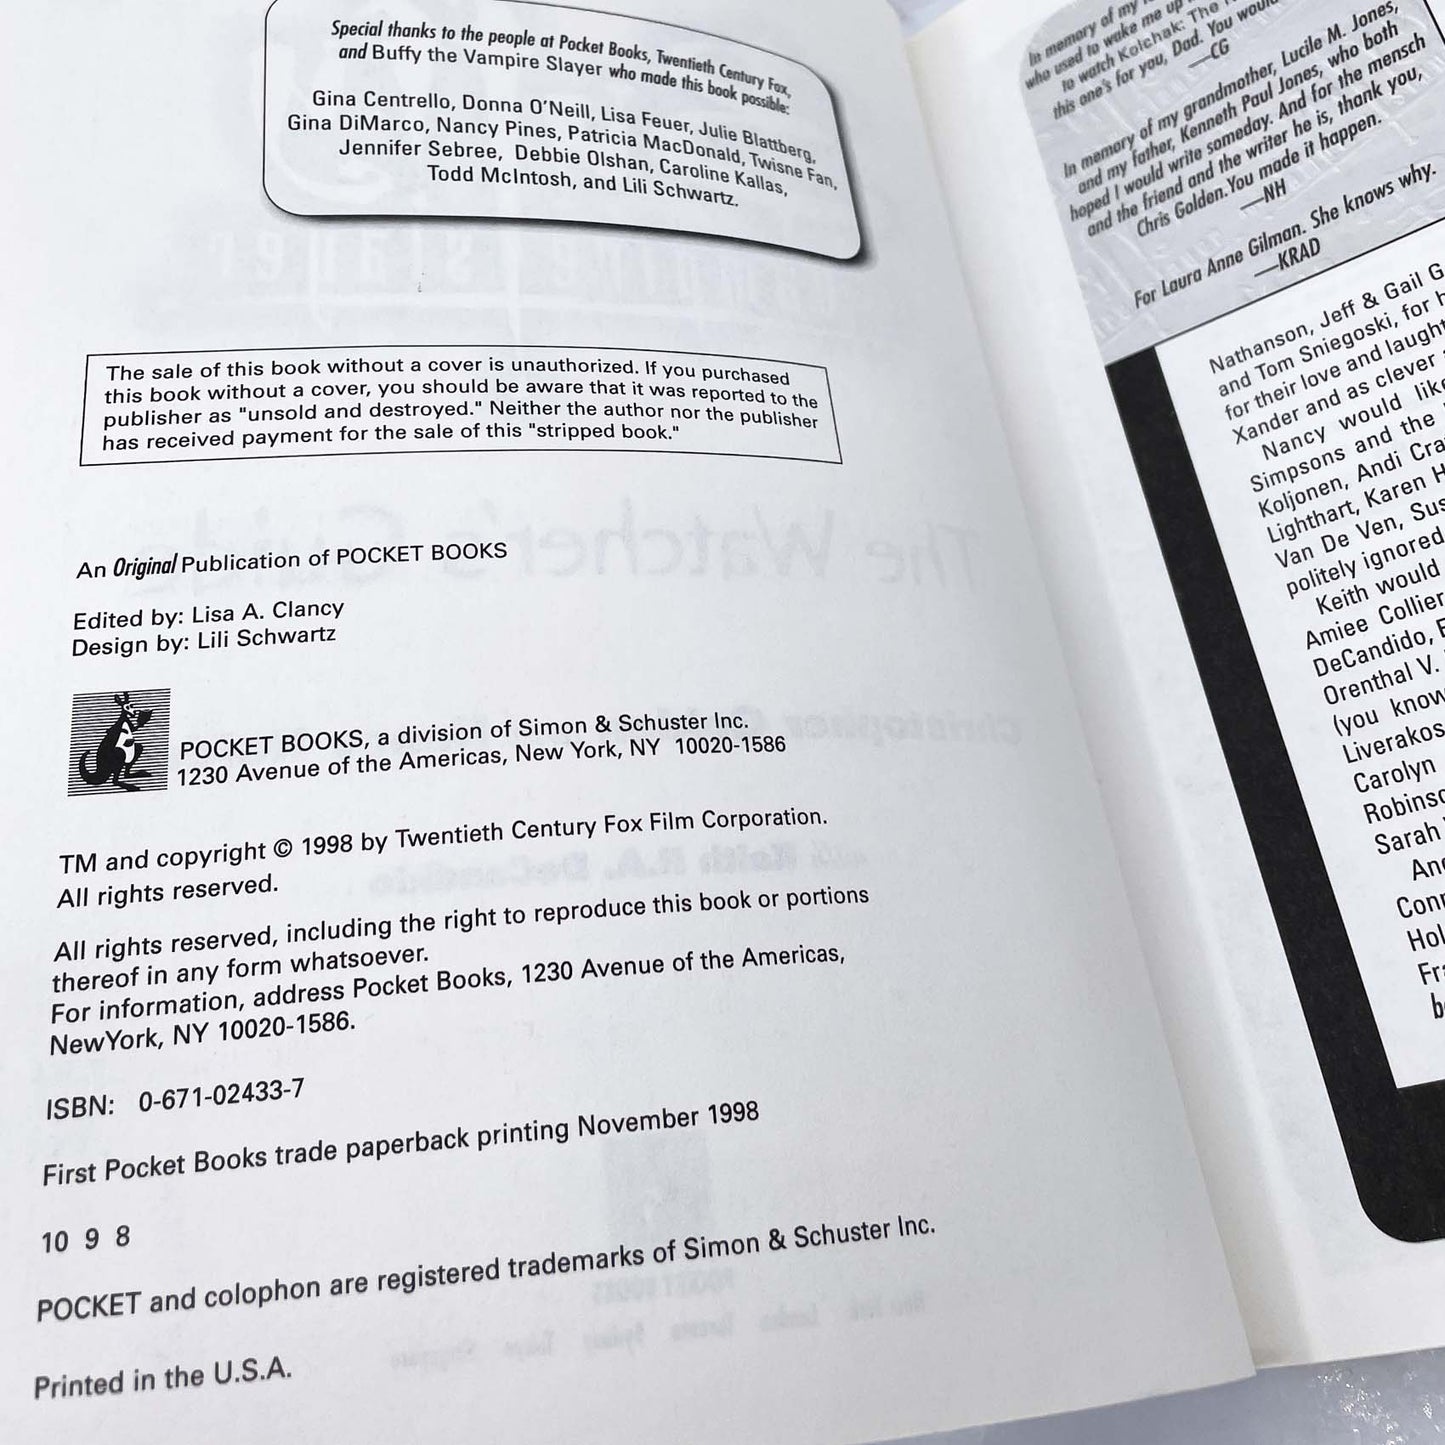 Special thanks to the people at Pocket Books, Twentieth Century Fox,
and Buffy the Vampire Slayer who made this book possible:
Gina Centrello, Donna O'Neill, Lisa Feuer, Julie Blattberg,
Gina DiMarco, Nancy Pines, Patricia MacDonald, Twisne Fan,
Jennifer Sebree, Debbie Olshan, Caroline Kallas,
Todd McIntosh, and Lili Schwartz.
The sale of this book without a cover is unauthorized. If you purchased
this book without a cover, you should be aware that it was reported to the
publisher as "unsold and destroyed." Neither the author nor the publisher
has received payment for the sale of this "stripped book."
An Original Publication of POCKET BOOKS
Edited by: Lisa A. Clancy
Design by: Lili Schwartz
POCKET BOOKS, a division of Simon & Schuster Inc.
1230 Avenue of the Americas, New York, NY 10020-1586
TM and copyright © 1998 by Twentieth Century Fox Film Corporation.
All rights reserved.
All rights reserved, including the right to reproduce this book or portions
thereof in any form whatsoever.
For information, address Pocket Books, 1230 Avenue of the Americas,
NewYork, NY 10020-1586.
ISBN: 0-671-02433-7
First Pocket Books trade paperback printing November 1998
10 9 8
POCKET and colophon are registered trademarks of Simon & Schuster Inc.
Printed in the U.S.A.
In memory of my
who used to wake me up
to watch Kolchak: The
this one's for you, Dad. You would
—CG
In memory of my grandmother, Lucile M. Jones,
and my father, Kenneth Paul Jones, who both
hoped I would write someday. And for the mensch
and the friend and the writer he is, thank you,
Chris Golden.You made it happen.
—NH
For Laura Anne Gilman. She knows why.
—KRAD
Nathanson, Jeff & Gail G
and Tom Sniegoski, for
for their love and laught
Xander and as clever
Nancy would lik
Simpsons and the
Koljonen, Andi Cra
Lighthart, Karen H
Van De Ven, Sus
politely ignored
Keith would
Amiee Collier
DeCandido,
Orenthal V.
(you know
Liverakos
Carolyn
Robinso
Sarah
An
Conn
Hol
Fr
b